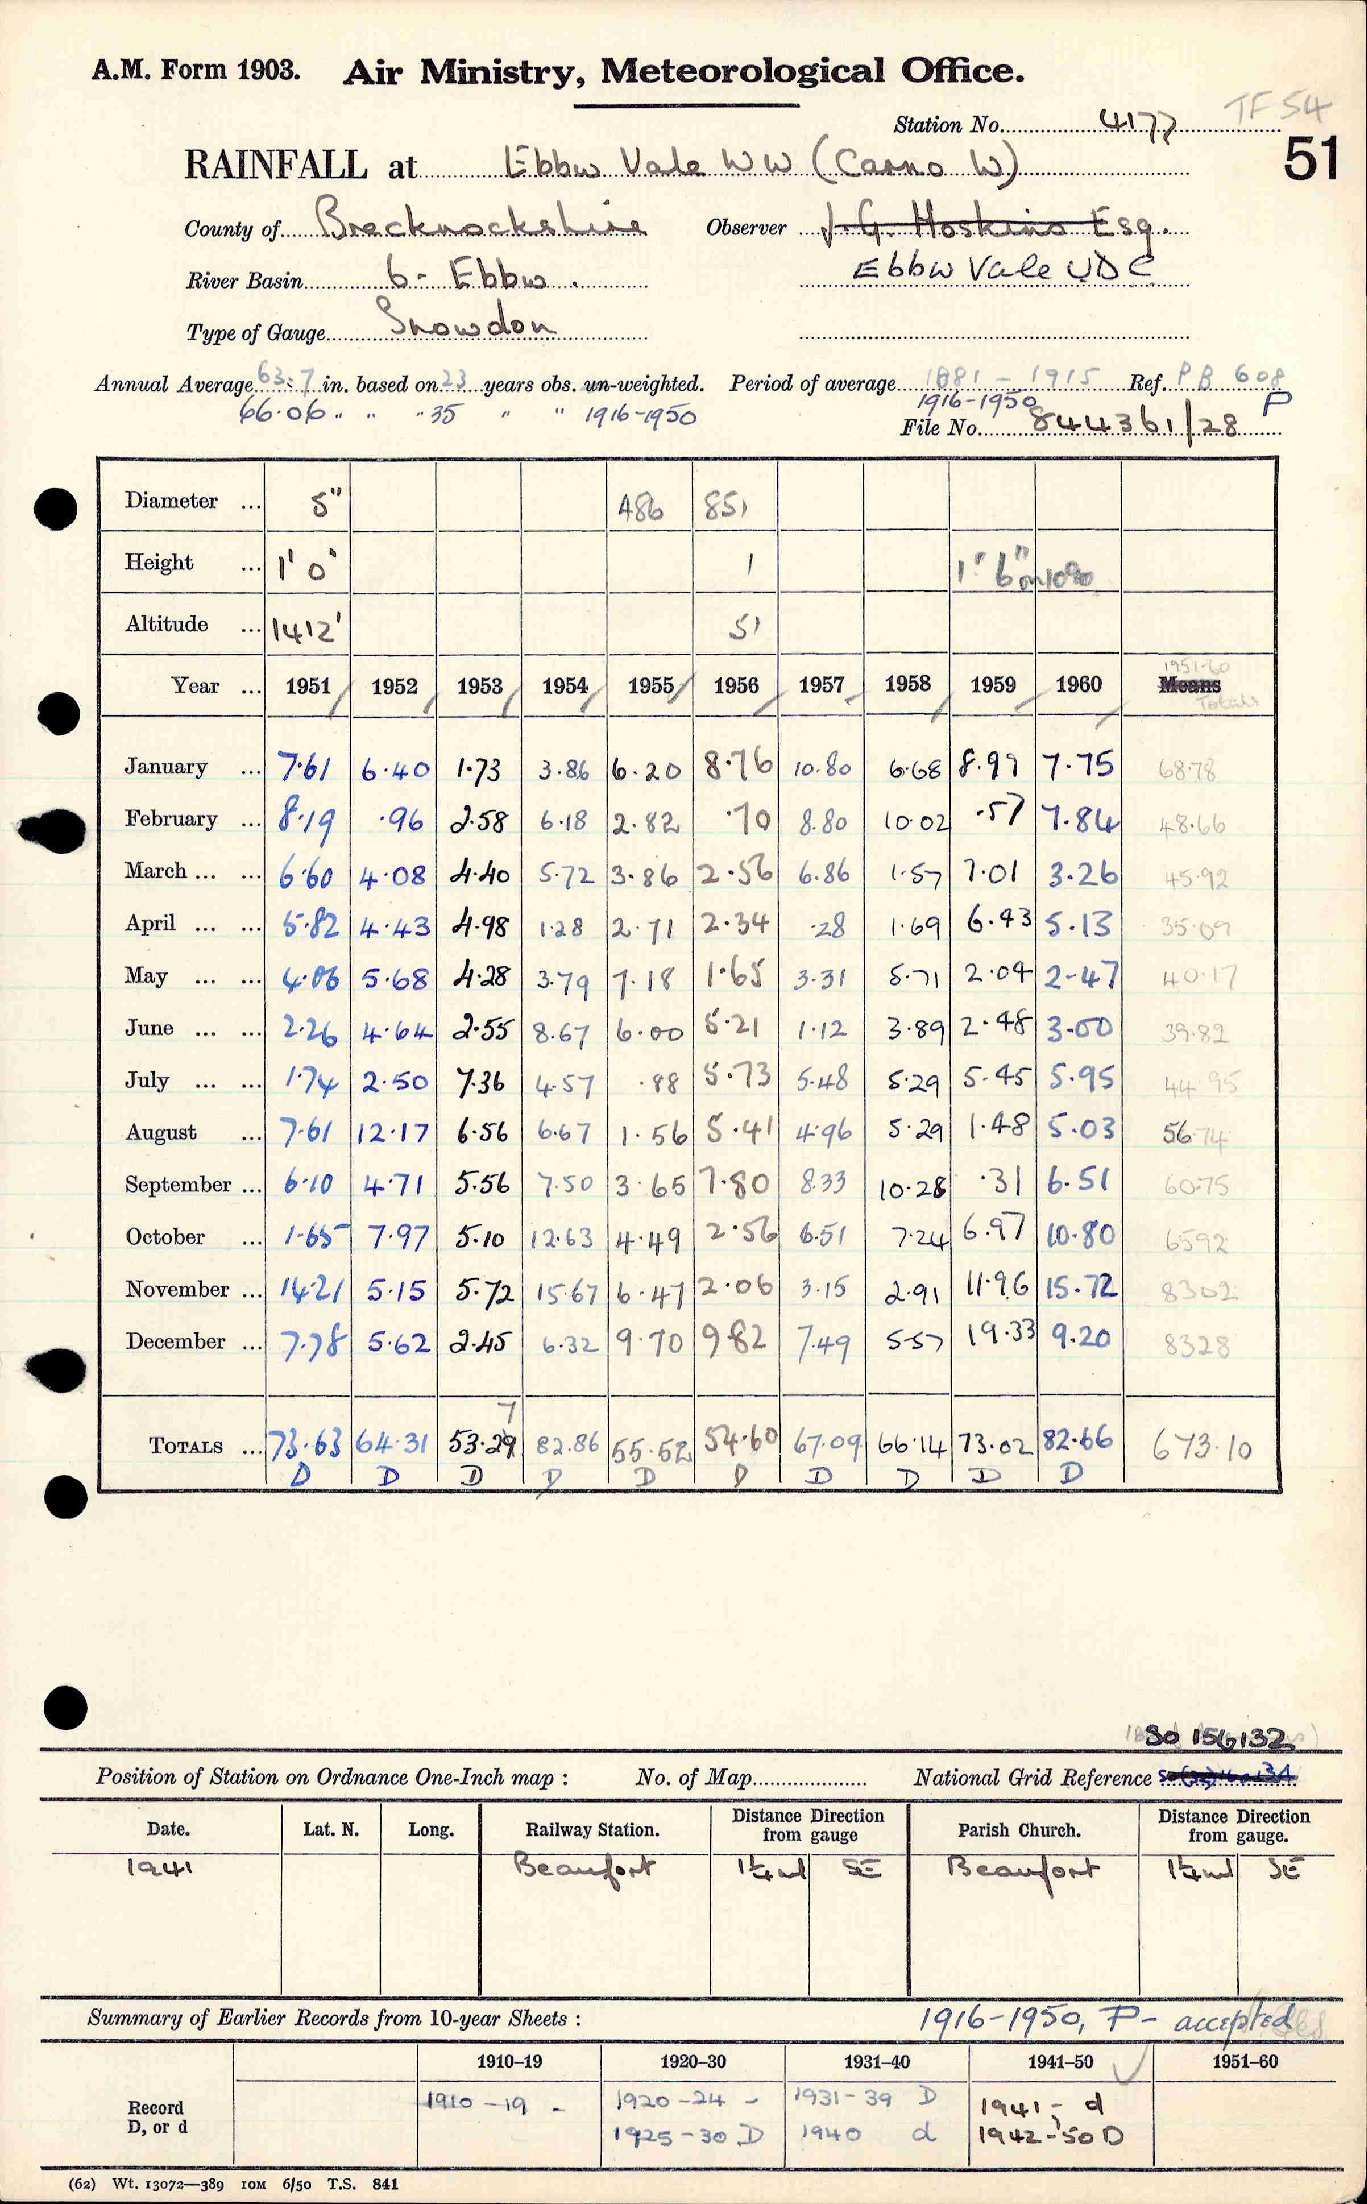 A.M. Form 1903. Air Ministry, Meteorological Office.
TF 54
Station No. 4177
51
RAINFALL at Ebbw Vale WW (Carno W)
County of Brecknockshire Observer J.G. Hoskins Esq.
River Basin 6 - Ebbw. Ebbw Vale UDC
Type of Gauge Snowdon
Annual Average 63.7 in. based on 23 years obs. un-weighted. Period of average 1881 - 1915 Ref. PB 608
66.06 " " " 35 " " 1916-1950 1916-1950 P
File No. 844361/28
Diameter ... 5" 486 851
Height ... 1' 0" 1 1' 6" on
Altitude ... 1412' 51
1951-60
Year ... 1951 1952 1953 1954 1955 1956 1957 1958 1959 1960 Means
Totals
January ... 7.61 6.40 1.73 3.86 6.20 8.76 10.80 6.68 8.99 7.75 68.78
February ... 8.19 .96 2.58 6.18 2.82 .70 8.80 10.02 .57 7.84 48.66
March ... ... 6.60 4.08 4.40 5.72 3.86 2.56 6.86 1.57 7.01 3.26 45.92
April ... ... 5.82 4.43 4.98 1.28 2.71 2.34 .28 1.69 6.43 5.13 35.09
May ... ... 4.06 5.68 4.28 3.79 7.18 1.65 3.31 5.71 2.04 2.47 40.17
June ... ... 2.26 4.64 2.55 8.67 6.00 5.21 1.12 3.89 2.48 3.00 39.82
July ... ... 1.74 2.50 7.36 4.57 .88 5.73 5.48 5.29 5.45 5.95 44.95
August ... 7.61 12.17 6.56 6.67 1.56 5.41 4.96 5.29 1.48 5.03 56.74
September ... 6.10 4.71 5.56 7.50 3.65 7.80 8.33 10.28 .31 6.51 60.75
October ... 1.65 7.97 5.10 12.63 4.49 2.56 6.51 7.24 6.97 10.80 65.92
November ... 14.21 5.15 5.72 15.67 6.47 2.06 3.15 2.91 11.96 15.72 83.02
December ... 7.78 5.62 2.45 6.32 9.70 9.82 7.49 5.57 19.33 9.20 83.28
7
TOTALS ... 73.63 64.31 53.29 82.86 55.52 54.60 67.09 66.14 73.02 82.66 673.10
D D D D D D D D D D
SO 156132
Position of Station on Ordnance One-Inch map : No. of Map National Grid Reference
Date. Lat. N. Long. Railway Station. Distance from gauge Direction Parish Church. Distance from gauge. Direction
1941 Beaufort 1¼ml SE Beaufort 1¼ml SE
Summary of Earlier Records from 10-year Sheets : 1916-1950, P - accepted
1910–19 1920–30 1931–40 1941–50 1951–60
Record D, or d 1910 - 19 - 1920 - 24 - 1931 - 39 D 1941 - d
1925 - 30 D 1940 d 1942-'50 D
(62) Wt. 13072—389 10M 6/50 T.S. 841